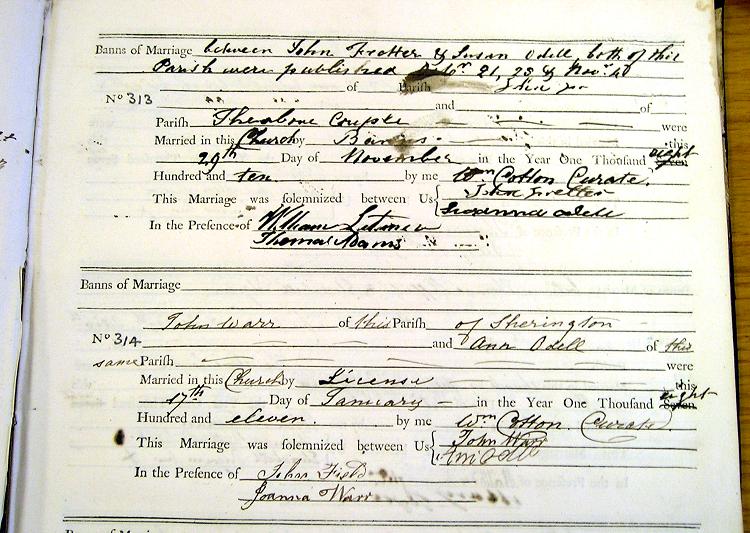 Banns of Marriage between John Trotter & Susan Odell both of this
Parish were published 21, 28 & Nov.r 4
of Parish
No 313 and of
Parish The above Couple were
Married in this Church by Banns this
29th Day of November in the Year One Thousand eight Seven
Hundred and ten by me Wm Cotton Curate.
This Marriage was solemnized between Us John Trotter
Susanna Odell
In the Presence of William
Thomas Adams
Banns of Marriage
John Warr of this Parish of Sherington
No 314 and Ann Odell of this
same Parish were
Married in this Church by License this
17th Day of January in the Year One Thousand eight Seven
Hundred and eleven. by me Wm Cotton. Curate
This Marriage was solemnized between Us John Warr
Ann Odell
In the Presence of John Field
Joanna Warr
Banns of Marriage